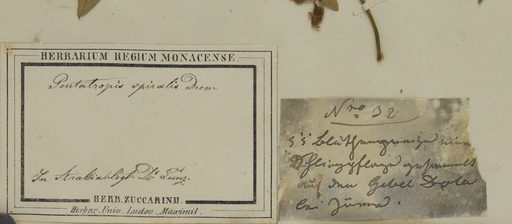 HERBARIUM REGIUM MONACENSE
Pentatropis spiralis Decne
In Arabia legit Dr.
HERB. ZUCCARINII.
Herbar. Univ. Ludov. Maximil.
Nro 32
Blüthenzweige
Schlingpflanze gesammelt
auf dem Gebel
bei